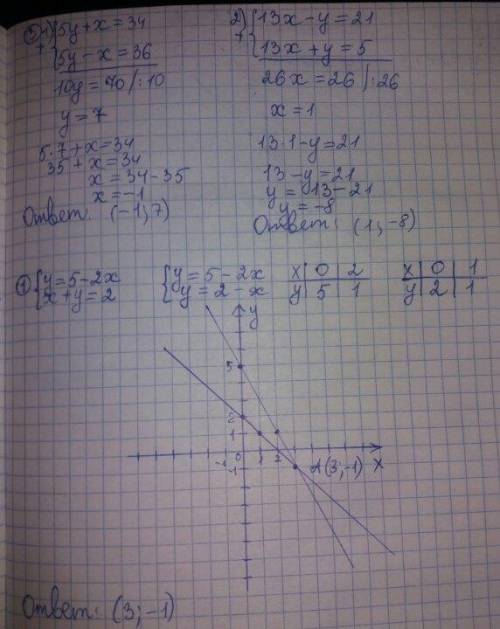 ② 1) { 5y + x = 34
+ { 5y - x = 36
10y = 70 /:10
y = 7
5·7 + x = 34
35 + x = 34
x = 34 - 35
x = -1
Ответ: (-1; 7)
2) { 13x - y = 21
+ { 13x + y = 5
26x = 26 /:26
x = 1
13·1 - y = 21
13 - y = 21
y = 13 - 21
y = -8
Ответ: (1; -8)
① { y = 5 - 2x { y = 5 - 2x x | 0 | 2 x | 0 | 1
{ x + y = 2 { y = 2 - x y | 5 | 1 y | 2 | 1
y
5
2
1
-1 0 1 2 A(3; -1) x
-1
Ответ: (3; -1)